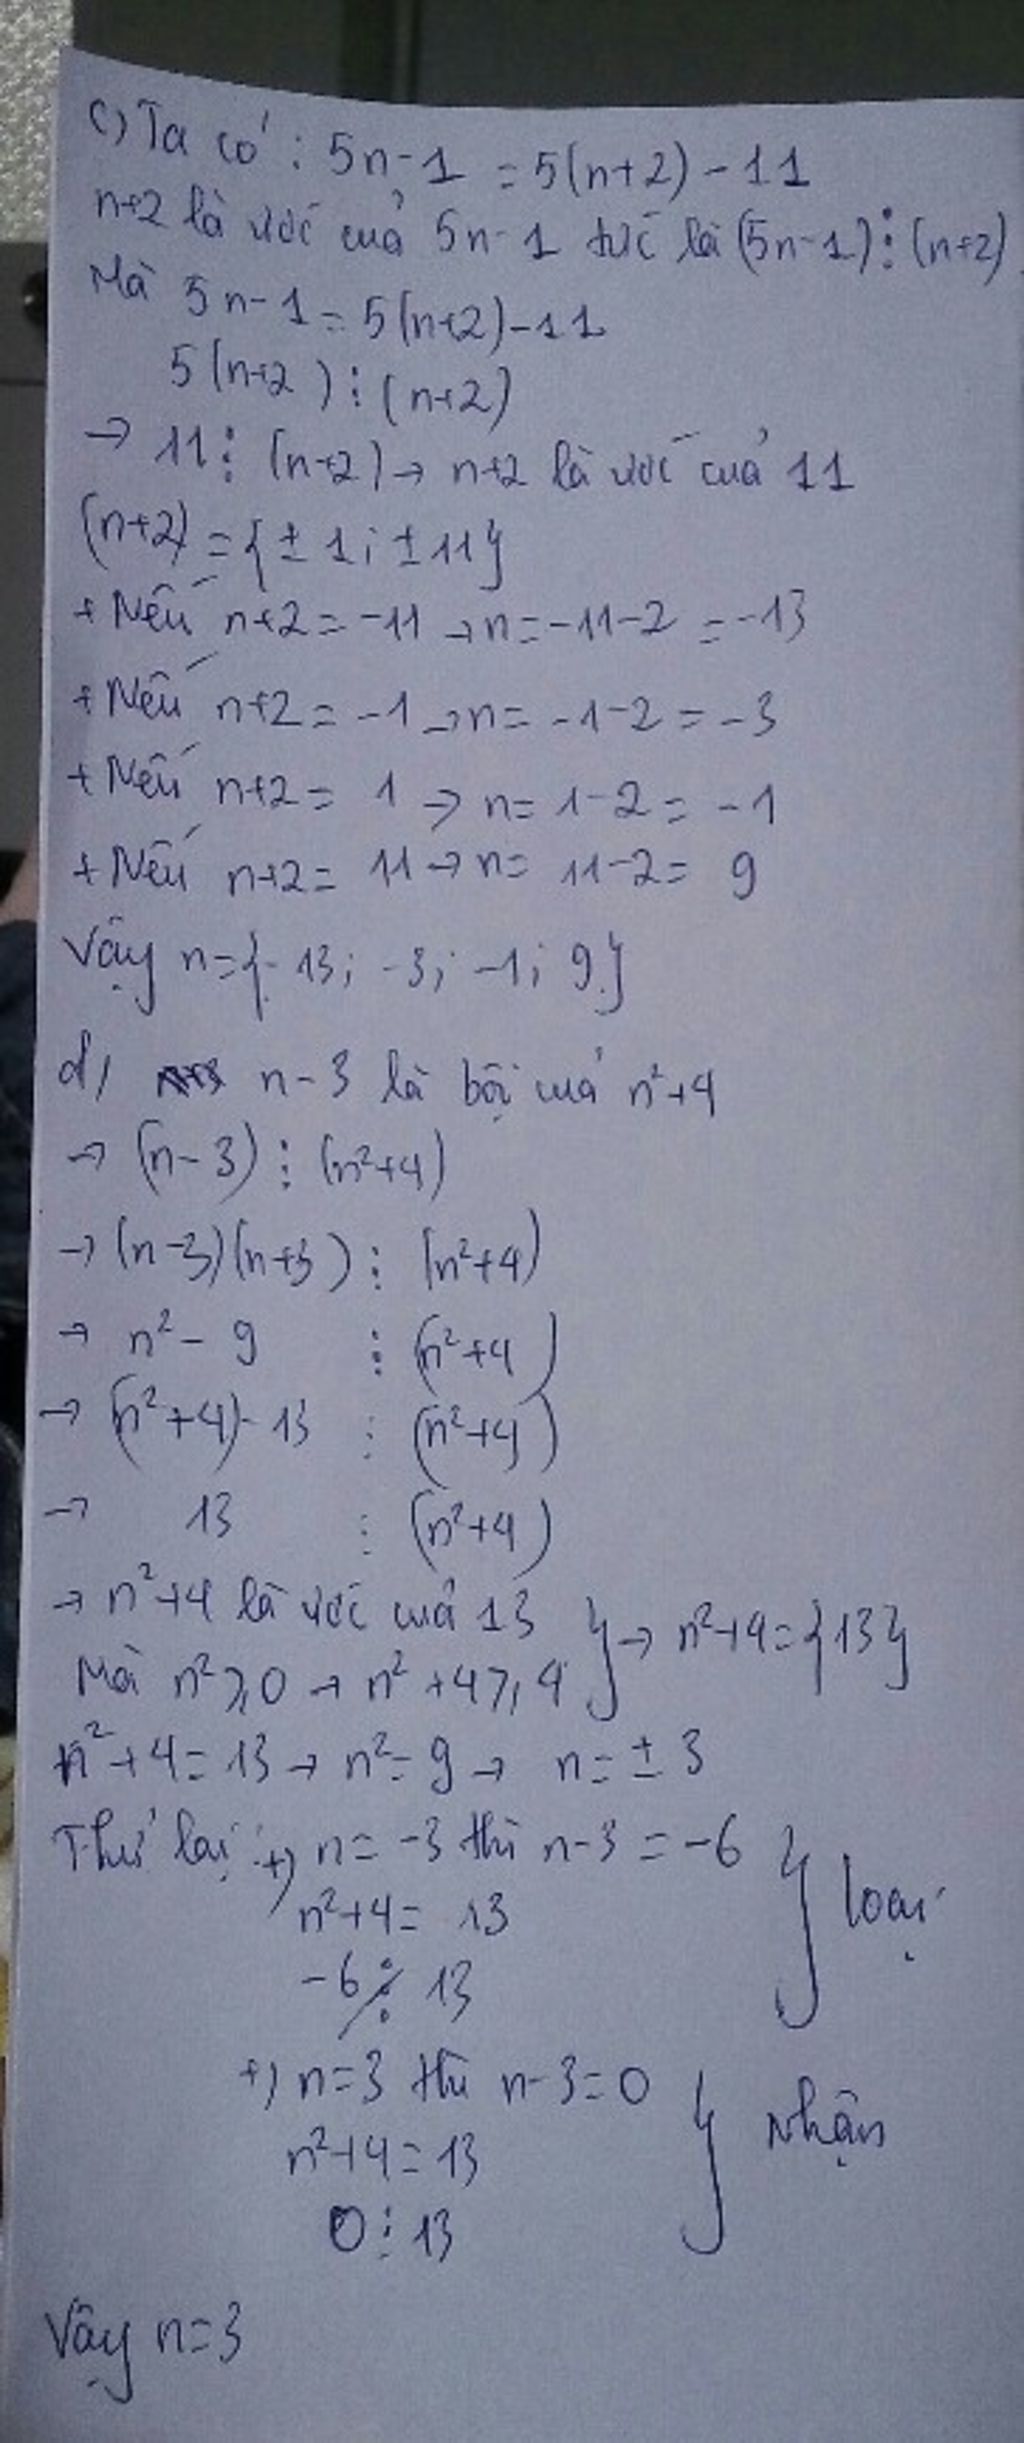 c) Ta có : 5n-1 = 5(n+2)-11
n+2 là ước của 5n-1 tức là (5n-1)⋮(n+2)
Mà 5n-1=5(n+2)-11
5(n+2)⋮(n+2)
→ 11⋮(n+2)→ n+2 là ước của 11
(n+2)={±1;±11}
+ Nếu n+2=-11→n=-11-2=-13
+ Nếu n+2=-1→n=-1-2=-3
+ Nếu n+2= 1→n=1-2=-1
+ Nếu n+2= 11→n= 11-2= 9
Vậy n={-13; -3; -1; 9}
d) n-3 là bội của n²+4
→ (n-3)⋮(n²+4)
→ (n-3)(n+3)⋮(n²+4)
→ n²-9 ⋮ (n²+4)
→ (n²+4)-13 ⋮ (n²+4)
→ 13 ⋮ (n²+4)
→ n²+4 là ước của 13 } → n²+4={13}
Mà n²≥0 → n²+4≥4
n²+4=13→n²=9→ n=±3
Thử lại: +) n=-3 thì n-3=-6 } loại
n²+4= 13
-6 ⋮̸ 13
+) n=3 thì n-3=0 } nhận
n²+4=13
0⋮13
Vậy n=3